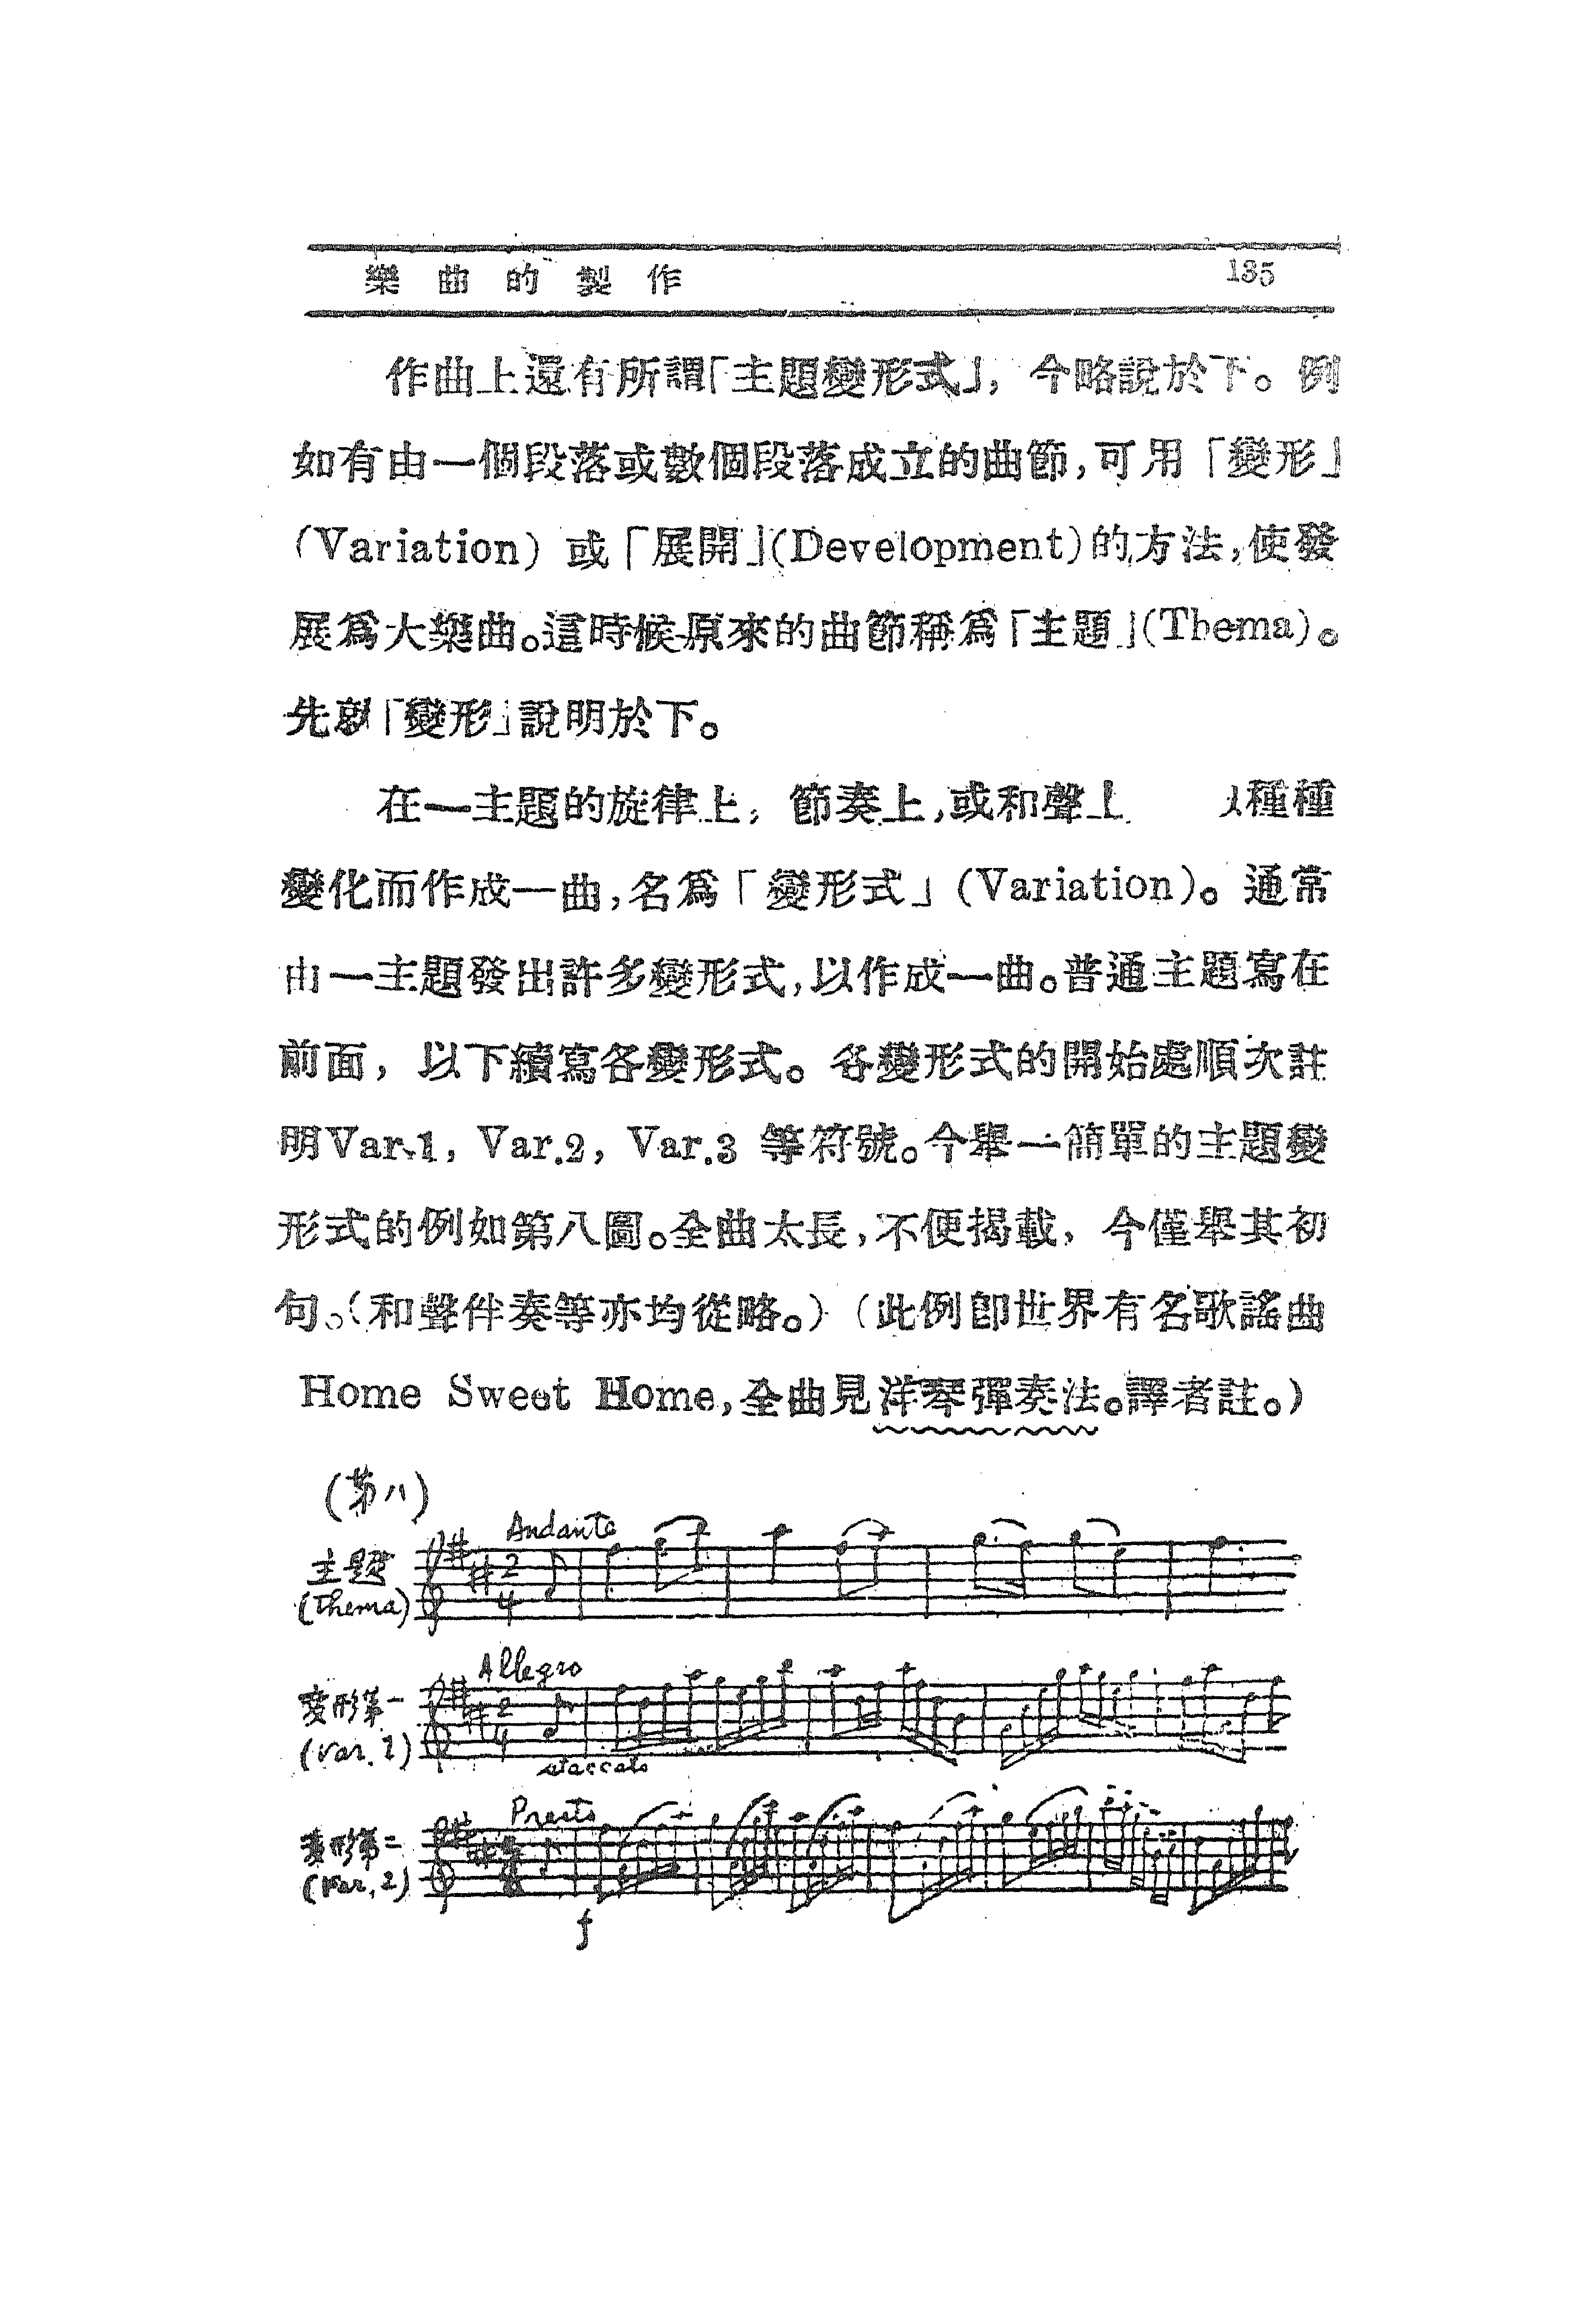 樂曲的製作 135
作曲上還有所謂「主題變形式」，今略說於下。例
如有由一個段落或數個段落成立的曲節，可用「變形」
(Variation) 或「展開」(Development)的方法，使發
展爲大樂曲。這時候原來的曲節稱爲「主題」(Thema)。
先就「變形」說明於下。
在一主題的旋律上，節奏上，或和聲上 種種
變化而作成一曲，名爲「變形式」(Variation)。通常
由一主題發出許多變形式，以作成一曲。普通主題寫在
前面，以下續寫各變形式。各變形式的開始處順次註
明Var.1, Var.2, Var.3 等符號。今舉一簡單的主題變
形式的例如第八圖。全曲太長，不便揭載，今僅舉其初
句。(和聲伴奏等亦均從略。)(此例卽世界有名歌謠曲
Home Sweet Home，全曲見洋琴彈奏法。譯者註。)
(第八)
Andante
主題
(Thema)
2
4
Allegro
変形第一
(Var. 1)
2
4
staccato
Presto
変形第二
(Var. 2)
f